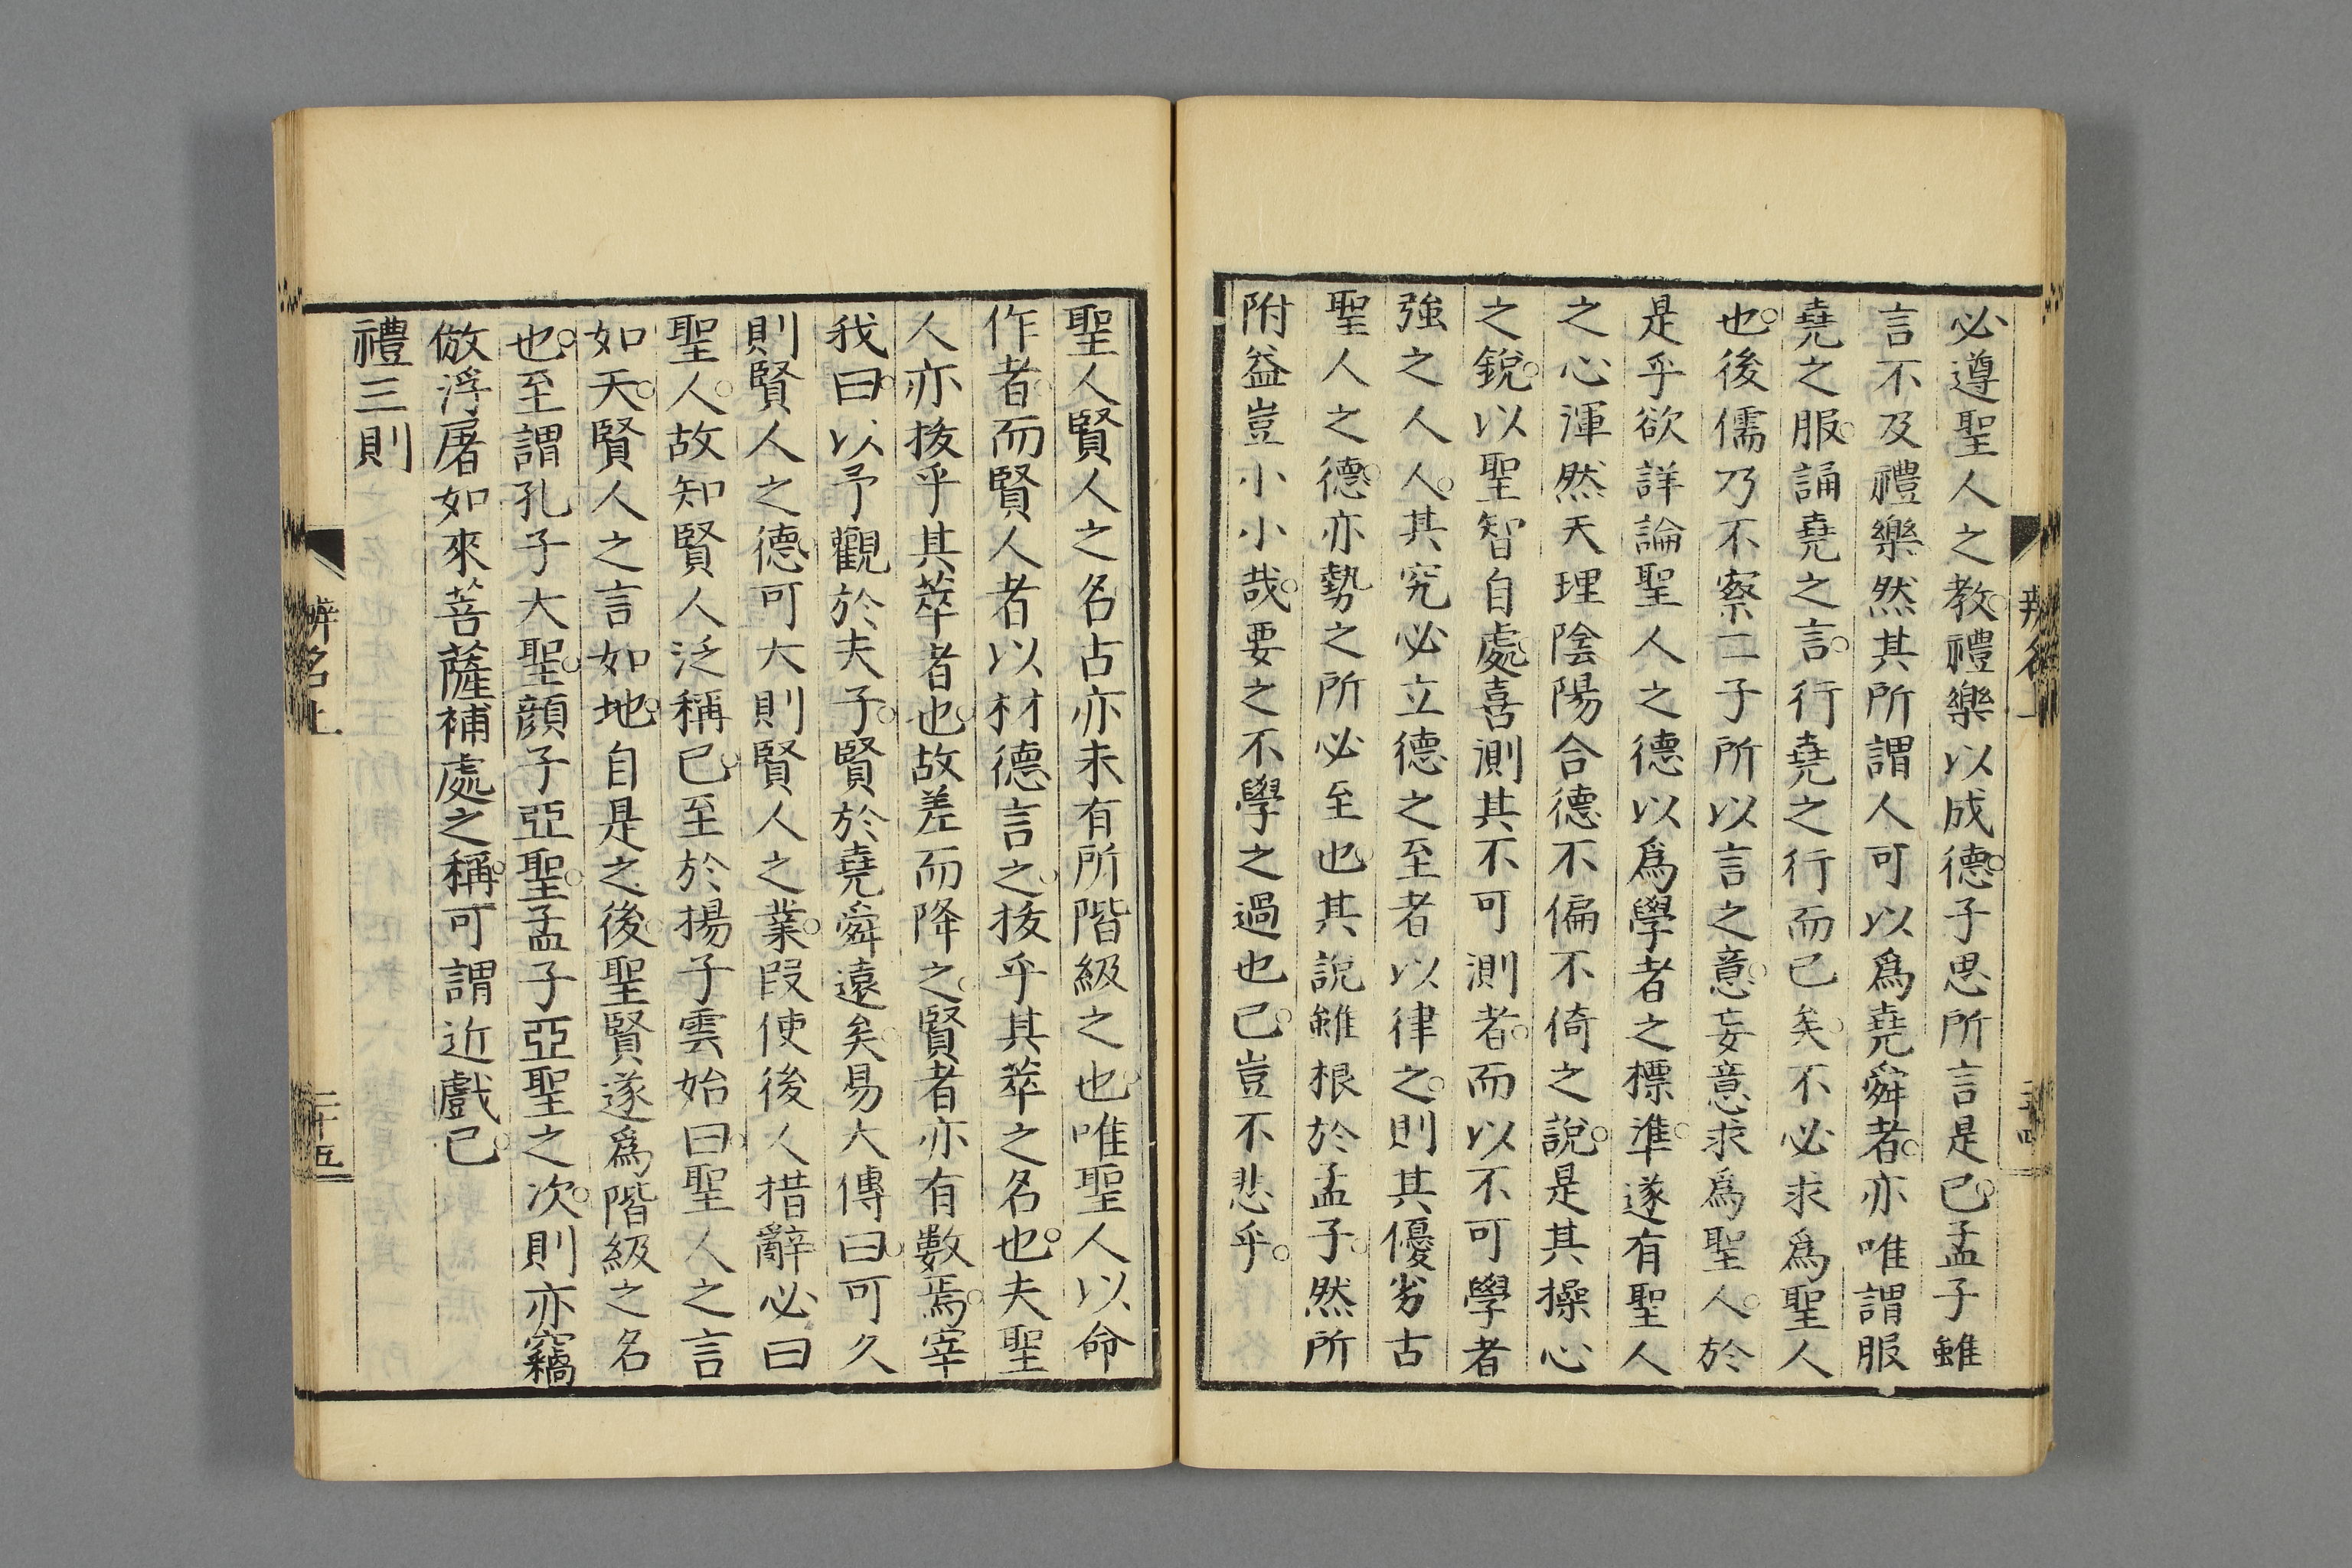 必遵聖人之教。禮樂以成德。子思所言是已。孟子雖
言不及禮樂然其所謂人可以爲堯舜者。亦唯謂服
堯之服。誦堯之言。行堯之行而已矣。不必求爲聖人
也。後儒乃不察二子所以言之意。妄意求爲聖人。於
是乎欲詳論聖人之德以爲學者之標準。遂有聖人
之心渾然天理陰陽合德不偏不倚之說。是其操心
之銳。以聖智自處。喜測其不可測者。而以不可學者
強之人人。其究必立德之至者以律之。則其優劣古
聖人之德。亦勢之所必至也。其說雖根於孟子。然所
附益豈小小哉。要之不學之過也已。豈不悲乎。
聖人賢人之名古亦未有所階級之也。唯聖人以命
作者。而賢人者以材德言之。拔乎其萃之名也。夫聖
人亦拔乎其萃者也。故差而降之。賢者亦有數焉。宰
我曰。以予觀於夫子。賢於堯舜遠矣。易大傳曰。可久
則賢人之德。可大則賢人之業。叚使後人措辭必曰
聖人。故知賢人泛稱已。至於揚子雲始曰。聖人之言
如天。賢人之言如地。自是之後。聖賢遂爲階級之名
也。至謂孔子大聖。顔子亞聖。孟子亞聖之次。則亦竊
倣浮屠如來菩薩補處之稱。可謂近戲已。
禮三則
辨名上
二十五